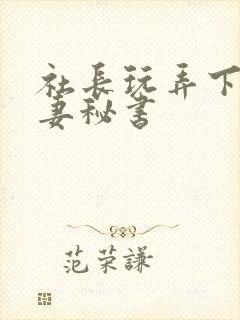 社長玩弄下
妻秘書
范荣謙